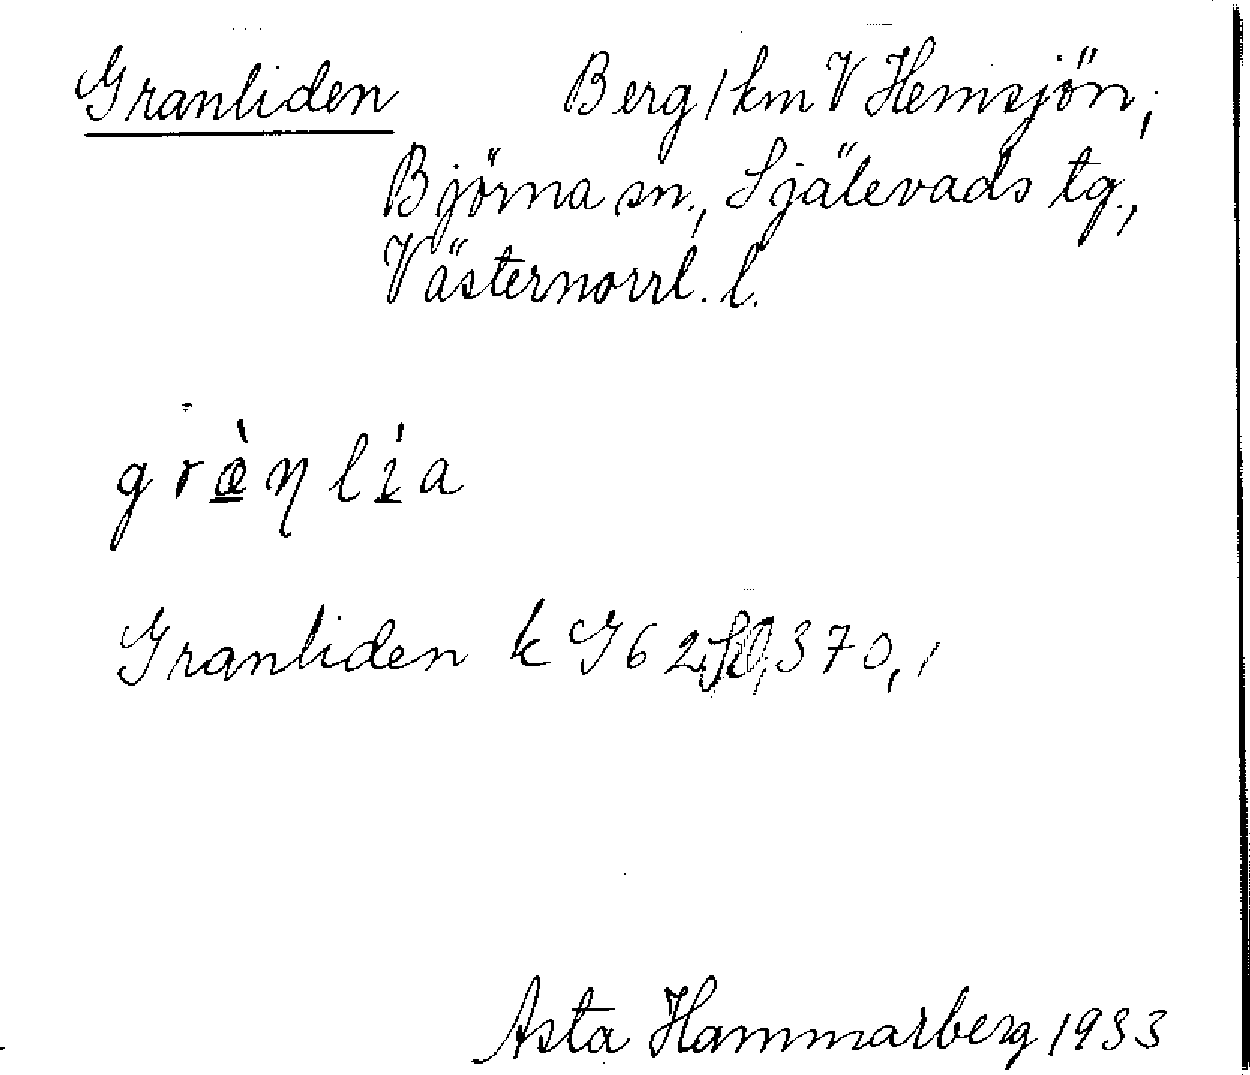 Granliden Berg 1 km V Hemsjön,
Björna sn., Själevads tg.,
Västernorrl. l.
græ̀ŋlia
Granliden k G62 370,1
Asta Hammarberg 1933